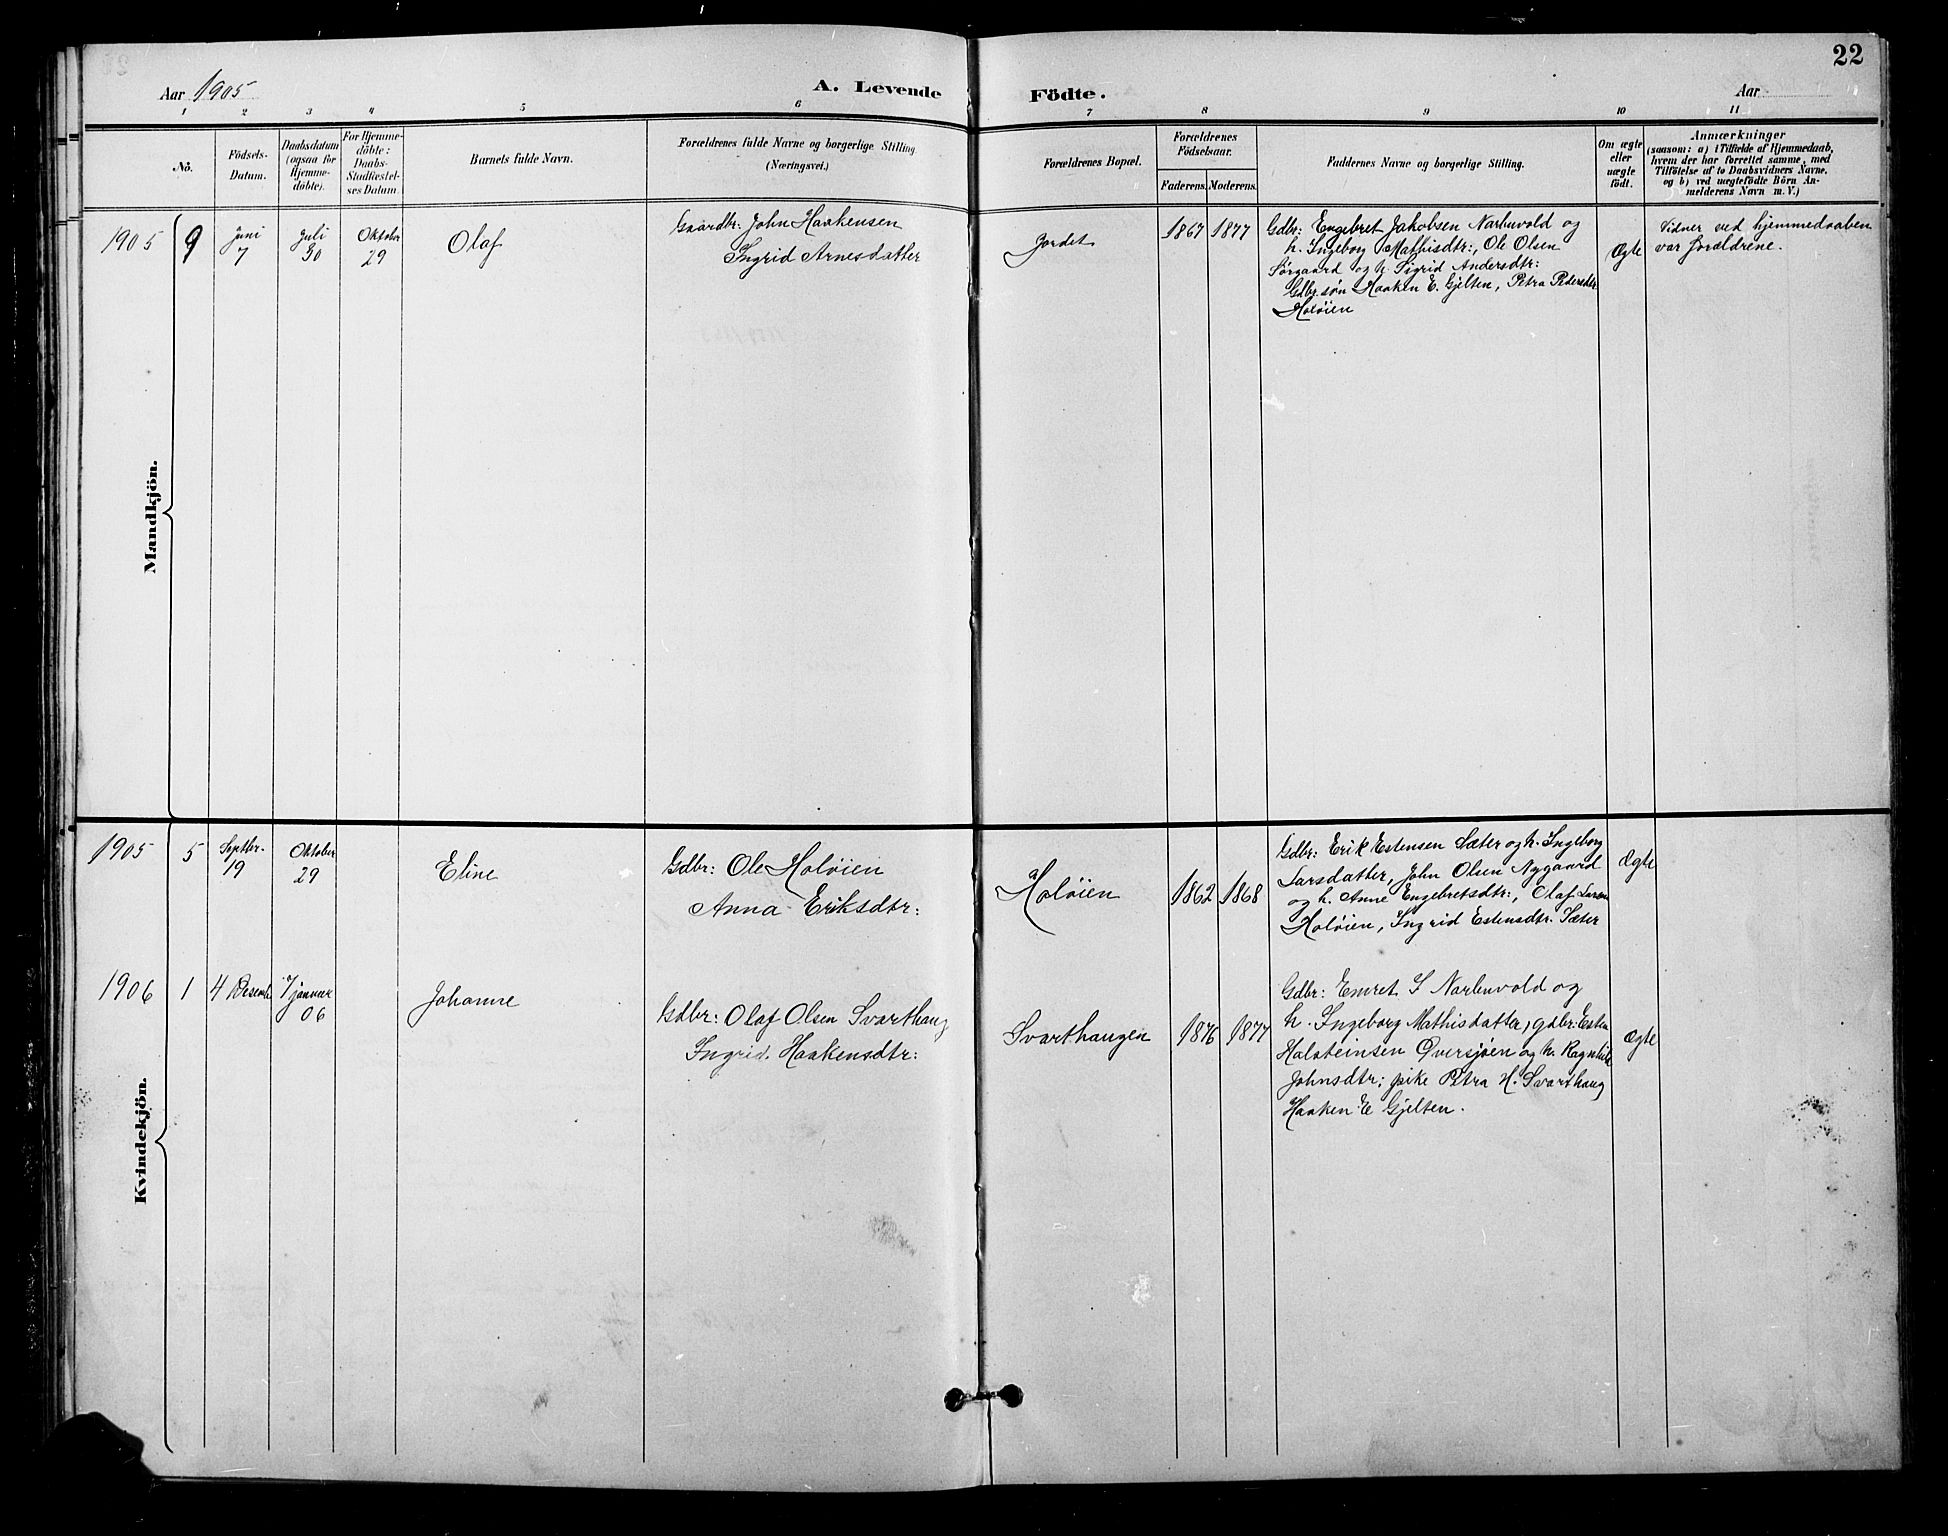 22
Aar 1905
A. Levende Födte.
Aar
1 2 3 4 5 6 7 8 9 10 11
Nô.
Födsels-
Datum.
Daabsdatum
(ogsaa for
Hjemme-
döbte).
For Hjemme-
döbte:
Daabs-
Stadfæstel-
ses Datum
Barnets fulde Navn.
Forældrenes fulde Navne og borgerlige Stilling
(Næringsvei.)
Forældrenes Bopæl.
Forældrenes
Födselsaar.
Faderens. Moderens.
Faddernes Navne og borgerlige Stilling.
Om ægte
eller
uægte
födt.
Anmærkninger
(saasom: a) i Tilfælde af Hjemmedaab,
hvem der har forrettet samme, med
Tilföielse af to Daabsvidners Navne,
og b) ved uægtefödte Börn An-
melderens Navn m. V.)
Mandkjön.
1905 9
Juni
7
Juli
30
Oktober
29
Olaf
Gaardbr: John Haakensen
Ingrid Arnesdatter
Jordet
1867 1877
Gdbr: Engebret Jakobsen Narbuvold og
h. Ingeborg Mathisdtr:, Ole Olsen
Sørgaard og h. Sigrid Andersdtr:
Gdbr. søn Haaken E. Gjelten, Petra Pedersdtr
Holøien
Ægte
Vidner ved hjemmedaaben
var forældrene.
Kvindekjön.
1905 5
Septbr.
19
Oktober
29
Eline
Gdbr: Ole Holøien
Anna Eriksdtr:
Holøien
1862 1868
Gdbr: Erik Estensen Sæter og h. Ingeborg
Larsdatter, John Olsen Nygaard
og h. Anne Engebretsdtr:, Olaf Larsen
Holøien, Ingrid Estensdtr. Sæter
Ægte
1906 1
4 Desemb.
7 januar
06
Johanne
Gdbr: Olaf Olsen Svarthaug
Ingrid Haakensdtr:
Svarthaugen
1876 1877
Gdbr: Emret J Narbuvold og
h. Ingeborg Mathisdatter, gdbr: Esten
Halsteinsen Øversjøen og h. Ragnhild
Johnsdtr; pike Petra H. Svarthaug
Haaken E Gjelten.
Ægte